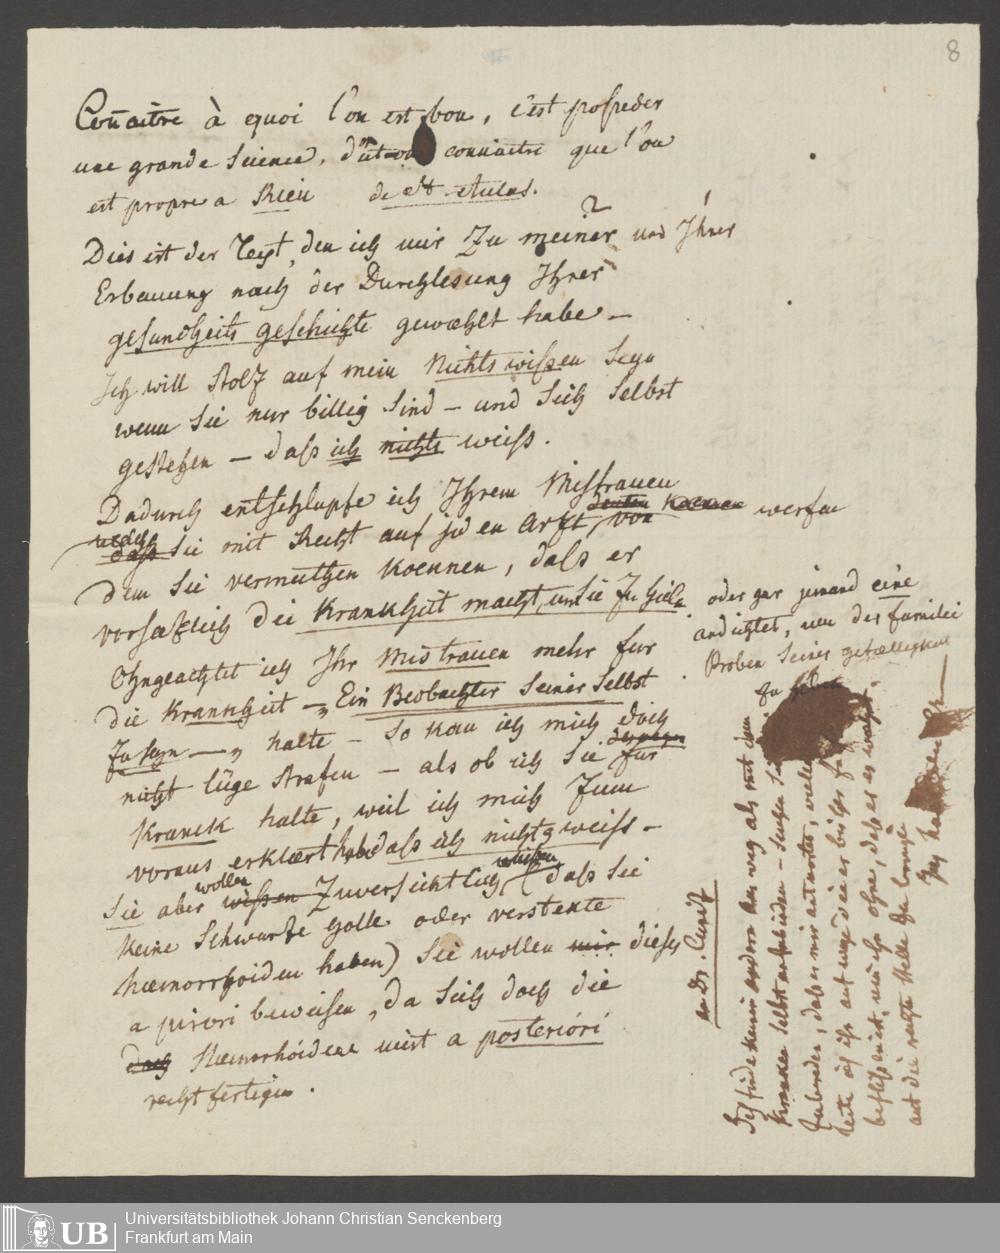 8
Connaitre à quoi l'on est bon, c'est posseder
une grande science, connaitre que l'on
est propre a Rien de St Aulas.
Dies ist der Text, den ich mir Zu meiner und Ihrer
Erbauung nach der Durchlesung Ihrer
gesundheits geschichte gewaehlt habe –
Ich will Stolz auf mein Nichts wissen Seyn
wenn Sie nur billig Sind – und Sich Selbst
gestehen – dass ich nichts weiss.
Dadurch entschlupfe ich Ihrem Misstrauen
welch dass Sie mit Recht auf jeden Arzt von koennen werfen
dem Sie vermuthen koennen, dass er
vorsaezlich die Krankheit macht, um Sie zu heilen
oder gar jemand eine
andichtet, um der familie
Proben Seiner gefaelligkeit
zu geben
Ohngeachtet ich Ihr Mistrauen mehr fur
die Krankheit – „Ein Beobachter Seiner Selbst
zu seyn –„ halte – So kan ich mich doch
nicht lüge Strafen – als ob ich Sie deswegen für
Kranck halte, weil ich mich Zum
voraus erklaert habe dass ich nichts weiss –
Sie aber wollen wissen Zuversichtlich wissen (dass Sie
keine Schwartze Galle oder versteckte
Haemorrhoiden haben) Sie wollen mir dieses
a priori beweisen, da Sich doch die
doch Haemorrhoiden erst a posteriori
rechtfertigen.
an Dr.
Ich finde keinen andern Ausweg als mit dem
Kranken Selbst anzubinden –
zureden, dass er mir antworte,
leite ich ihn auf
dass er es
auf die rechte Stelle zu bringen
Universitätsbibliothek Johann Christian Senckenberg
Frankfurt am Main
UB